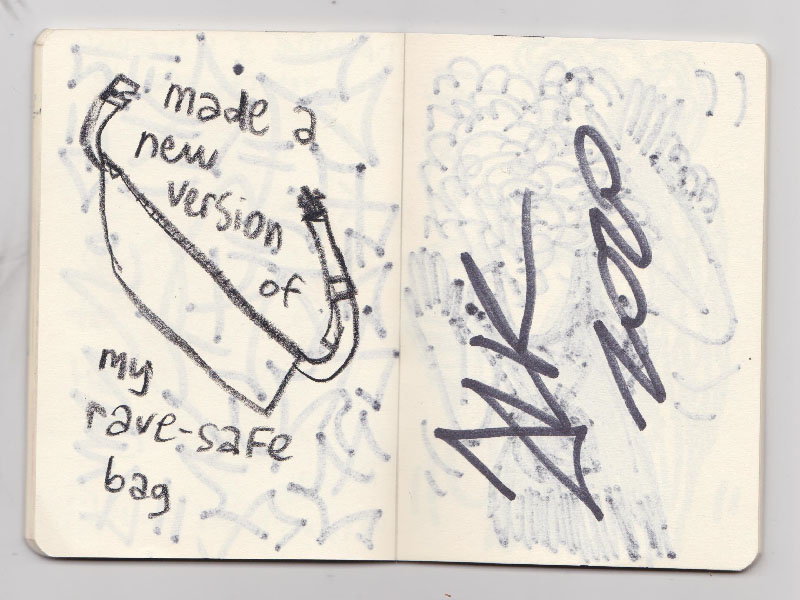 made a
new
version
of
my
rave-safe
bag